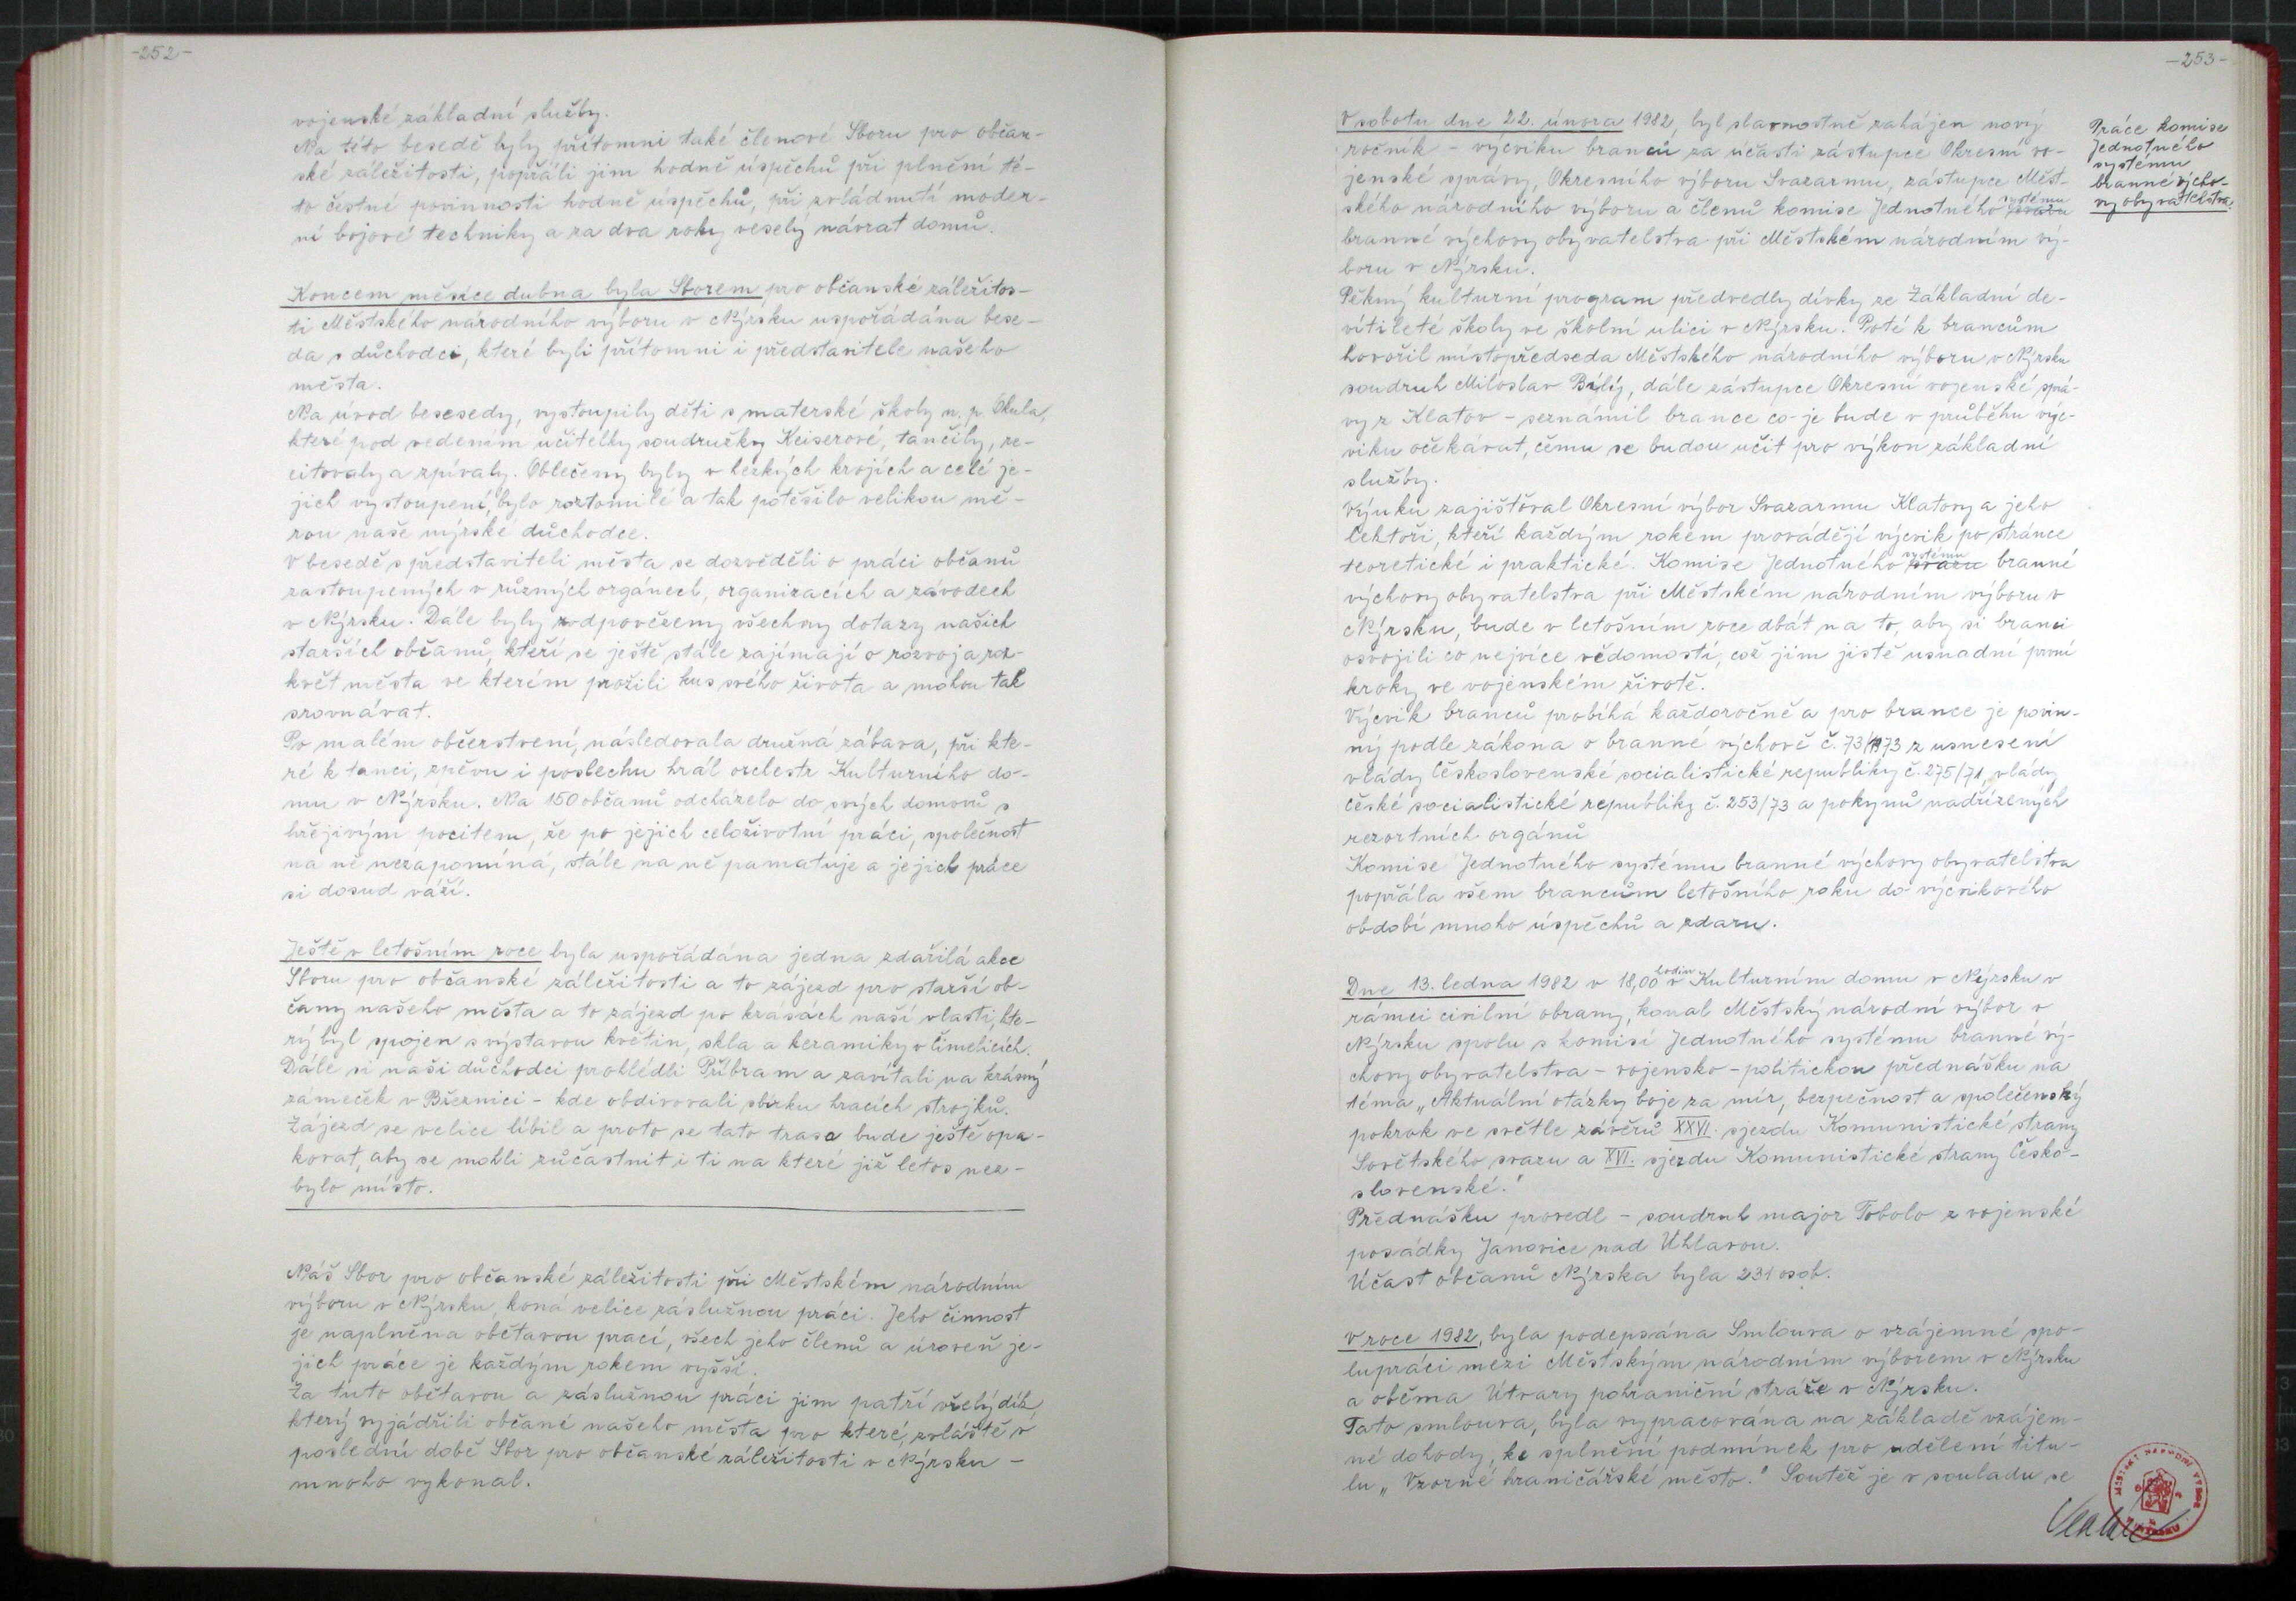 -252-
vojenské základní služby.
Na této besedě byly přítomni také členové Sboru pro občan-
ské záležitosti, popřáli jim hodně úspěchů při plnění té-
to čestné povinnosti hodně úspěchů, při zvládnutí moder-
ní bojové techniky a za dva roky veselý návrat domů.
Koncem měsíce dubna byla Sborem pro občanské záležitos-
ti Městského národního výboru v Nýrsku uspořádána bese-
da s důchodci, které byli přítomni i představitele našeho
města.
Na úvod besesedy, vystoupily děti s materské školy n. p. Okula,
které pod vedením učitelky soudružky Keiserové, tančily, re-
citovaly a zpívaly. Oblečeny byly v hezkých krojích a celé je-
jich vystoupení, bylo roztomilé a tak potěšilo velikou mě-
rou naše nýrské důchodce.
V besedě s představiteli města se dozvěděli o práci občanů
zastoupených v různých orgánech, organizacích a závodech
v Nýrsku. Dále byly zodpovězeny všechny dotazy našich
starších občanů, kteří se ještě stále zajímají o rozvoj a roz-
květ města ve kterém prožili kus svého života a mohou tak
srovnávat.
Po malém občerstvení, následovala družná zábava, při kte-
ré k tanci, zpěvu i poslechu hrál orchestr Kulturního do-
mu v Nýrsku. Na 150 občanů odcházelo do svých domovů s
hřejivým pocitem, že po jejich celoživotní práci, společnost
na ně nezapomíná, stále na ně pamatuje a jejich práce
si dosud váží.
Ještě v letošním roce byla uspořádána jedna zdařilá akce
Sboru pro občanské záležitosti a to zájezd pro starší ob-
čany našeho města a to zájezd po krásách naší vlasti, kte-
rý byl spojen s výstavou květin, skla a keramiky v Čimelicích.
Dále si naši důchodci prohlédli Příbram a zavítali na krásný
zámeček v Březnici - kde obdivovali sbírku hracích strojků.
Zájezd se velice líbil a proto se tato trasa bude ještě opa-
kovat, aby se mohli zúčastnit i ti na které již letos nez-
bylo místo.
Náš Sbor pro občanské záležitosti při Městském národním
výboru v Nýrsku, koná velice záslužnou práci. Jeho činnost
je naplněna obětavou prací, všech jeho členů a úroveň je-
jich práce je každým rokem vyšší.
Za tuto obětavou a záslužnou práci jim patří vřelý dík,
který vyjádřili občané našeho města pro které, zvláště v
poslední době Sbor pro občanské záležitosti v Nýrsku -
mnoho vykonal.
-253-
V sobotu dne 22. února 1982, byl slavnostně zahájen nový
ročník - výcviku branců za účasti zástupce Okresní vo-
jenské správy, Okresního výboru Svazarmu, zástupce Měst-
ského národního výboru a členů komise Jednotného systému svazu
branné výchovy obyvatelstva při Městském národním vý-
boru v Nýrsku.
Pěkný kulturní program předvedly dívky ze Základní de-
vítileté školy ve školní ulici v Nýrsku. Poté k brancům
hovořil místopředseda Městského národního výboru v Nýrsku
soudruh Miloslav Bílý, dále zástupce Okresní vojenské sprá-
vy z Klatov - seznámil brance co je bude v průběhu výc-
viku očekávat, čemu se budou učit pro výkon základní
služby.
Výuku zajišťoval Okresní výbor Svazarmu Klatovy a jeho
lektoři, kteří každým rokem provádějí výcvik po stránce
teoretické i praktické. Komise Jednotného systému svazu branné
výchovy obyvatelstva při Městském národním výboru v
Nýrsku, bude v letošním roce dbát na to, aby si branci
osvojili co nejvíce vědomostí, což jim jistě usnadní první
kroky ve vojenském životě.
Výcvik branců probíhá každoročně a pro brance je povin-
ný podle zákona o branné výchově č. 73/1973 z usnesení
vlády Československé socialistické republiky č. 275/71, vlády
České socialistické republiky č. 253/73 a pokynů nadřízených
rezortních orgánů
Komise Jednotného systému branné výchovy obyvatelstva
popřála všem brancům letošního roku do výcvikového
období mnoho úspěchů a zdaru.
Dne 13. ledna 1982 v 18,00 hodin v Kulturním domu v Nýrsku v
rámci civilní obrany, konal Městský národní výbor v
Nýrsku spolu s komisí Jednotného systému branné vý-
chovy obyvatelstva - vojensko - politickou přednášku na
téma „Aktuální otázky boje za mír, bezpečnost a společenský
pokrok ve světle závěrů XXVI. sjezdu Komunistické strany
Sovětského svazu a XVI. sjezdu Komunistické strany Česko-
slovenské."
Přednášku provedl - soudruh major Tobolo z vojenské
posádky Janovice nad Úhlavou.
Účast občanů Nýrska byla 231 osob.
V roce 1982, byla podepsána Smlouva o vzájemné spo-
lupráci mezi Městským národním výborem v Nýrsku
a oběma Útvary pohraniční stráže v Nýrsku.
Tato smlouva, byla vypracována na základě vzájem-
né dohody, ke splnění podmínek pro udělení titu-
lu „Vzorné hraničářské město." Soutěž je v souladu se
Práce komise
Jednotného
systému
branné výcho-
vy obyvatelstva.
MĚSTSKÝ NÁRODNÍ VÝBOR
V NÝRSKU